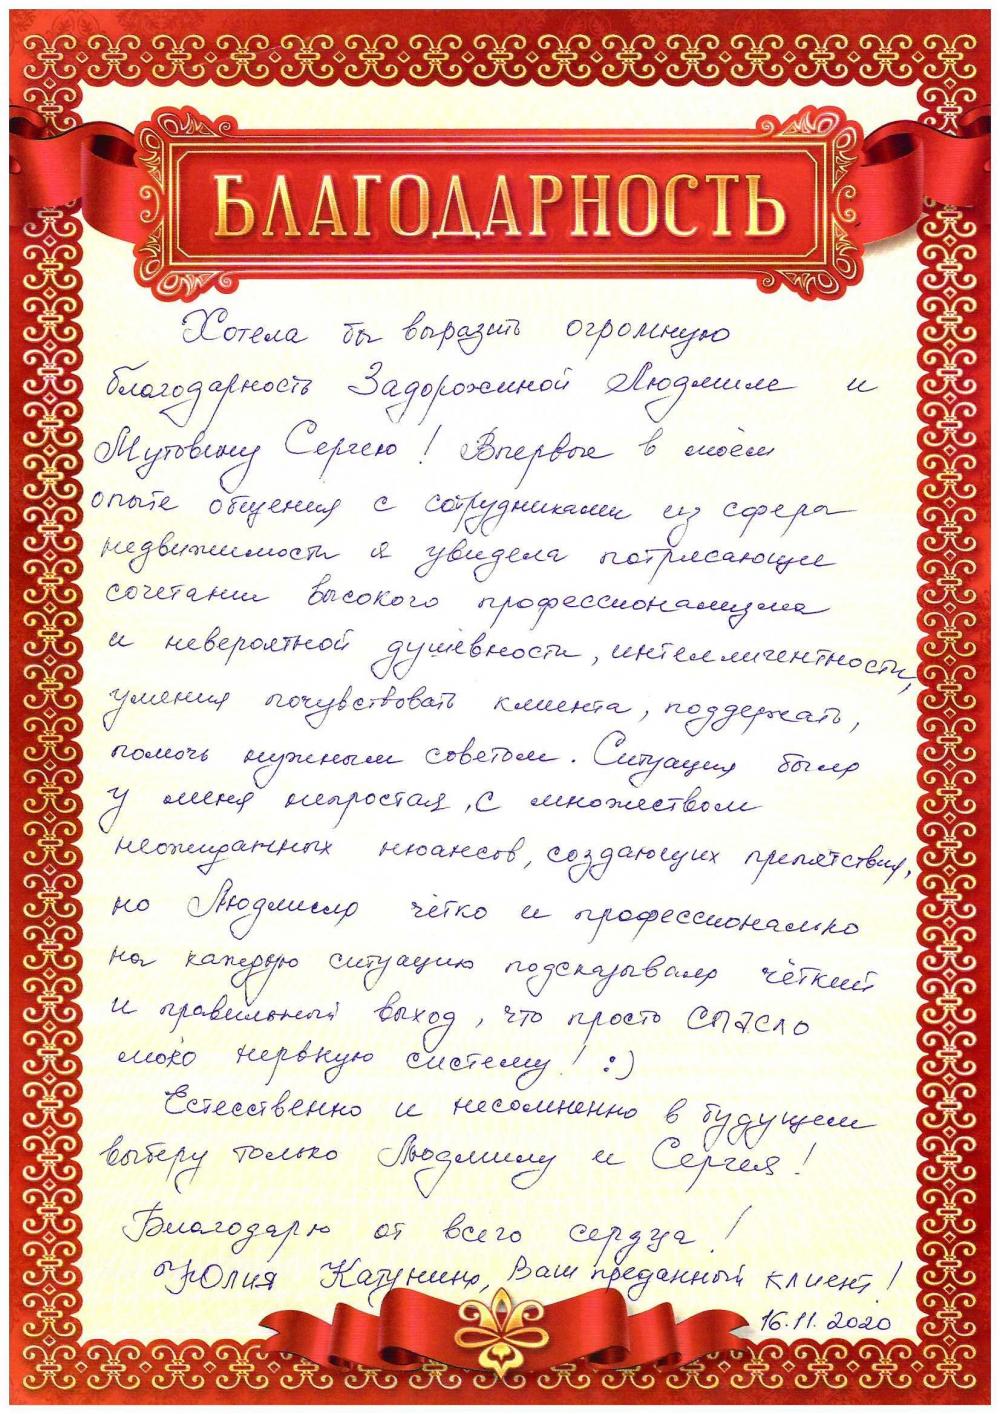 БЛАГОДАРНОСТЬ
Хотела бы выразить огромную
благодарность Задорожиной Людмиле и
Мутовину Сергею! Впервые в моём
опыте общения с сотрудниками из сферы
недвижимости я увидела потрясающее
сочетание высокого профессионализма
и невероятной душевности, интеллигентности,
умения почувствовать клиента, поддержать,
помочь нужным советом. Ситуация была
у меня непростая, с множеством
неожиданных нюансов, создающих препятствия,
но Людмила чётко и профессионально
на каждую ситуацию подсказывала чёткий
и правильный выход, что просто СПАСЛО
мою нервную систему! :)
Естесственно и несомненно в будущем
выберу только Людмилу и Сергея!
Благодарю от всего сердца!
Юлия Катунина, Ваш преданный клиент!
16.11.2020